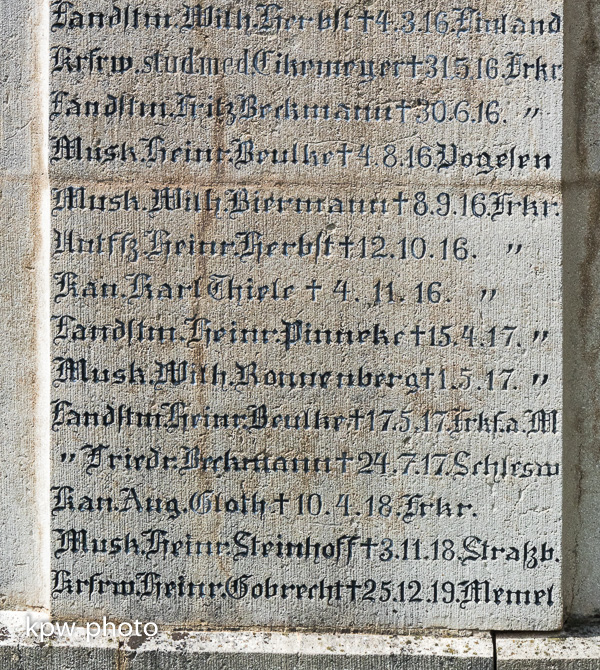 Landstm. Wilh. Herbst † 4.3.16. Finland
Krfrw. stud. med. Eikemeyer † 31.5.16. Frkr.
Landstm. Fritz Beckmann † 30.6.16. "
Musk. Heinr. Beulke † 4.8.16. Vogesen
Musk. Wilh. Biermann † 8.9.16. Frkr.
Untffz. Heinr. Herbst † 12.10.16. "
Kan. Karl Thiele † 4.11.16. "
Landstm. Heinr. Pinneke † 15.4.17. "
Musk. Wilh. Ronnenberg † 1.5.17. "
Landstm. Heinr. Beulke † 17.5.17. Frkf. a. M
" Friedr. Beckmann † 24.7.17. Schlesw
Kan. Aug. Gloth † 10.4.18. Frkr.
Musk. Heinr. Steinhoff † 3.11.18. Straßb.
Krfrw. Heinr. Gobrecht † 25.12.19. Memel
kpw.photo